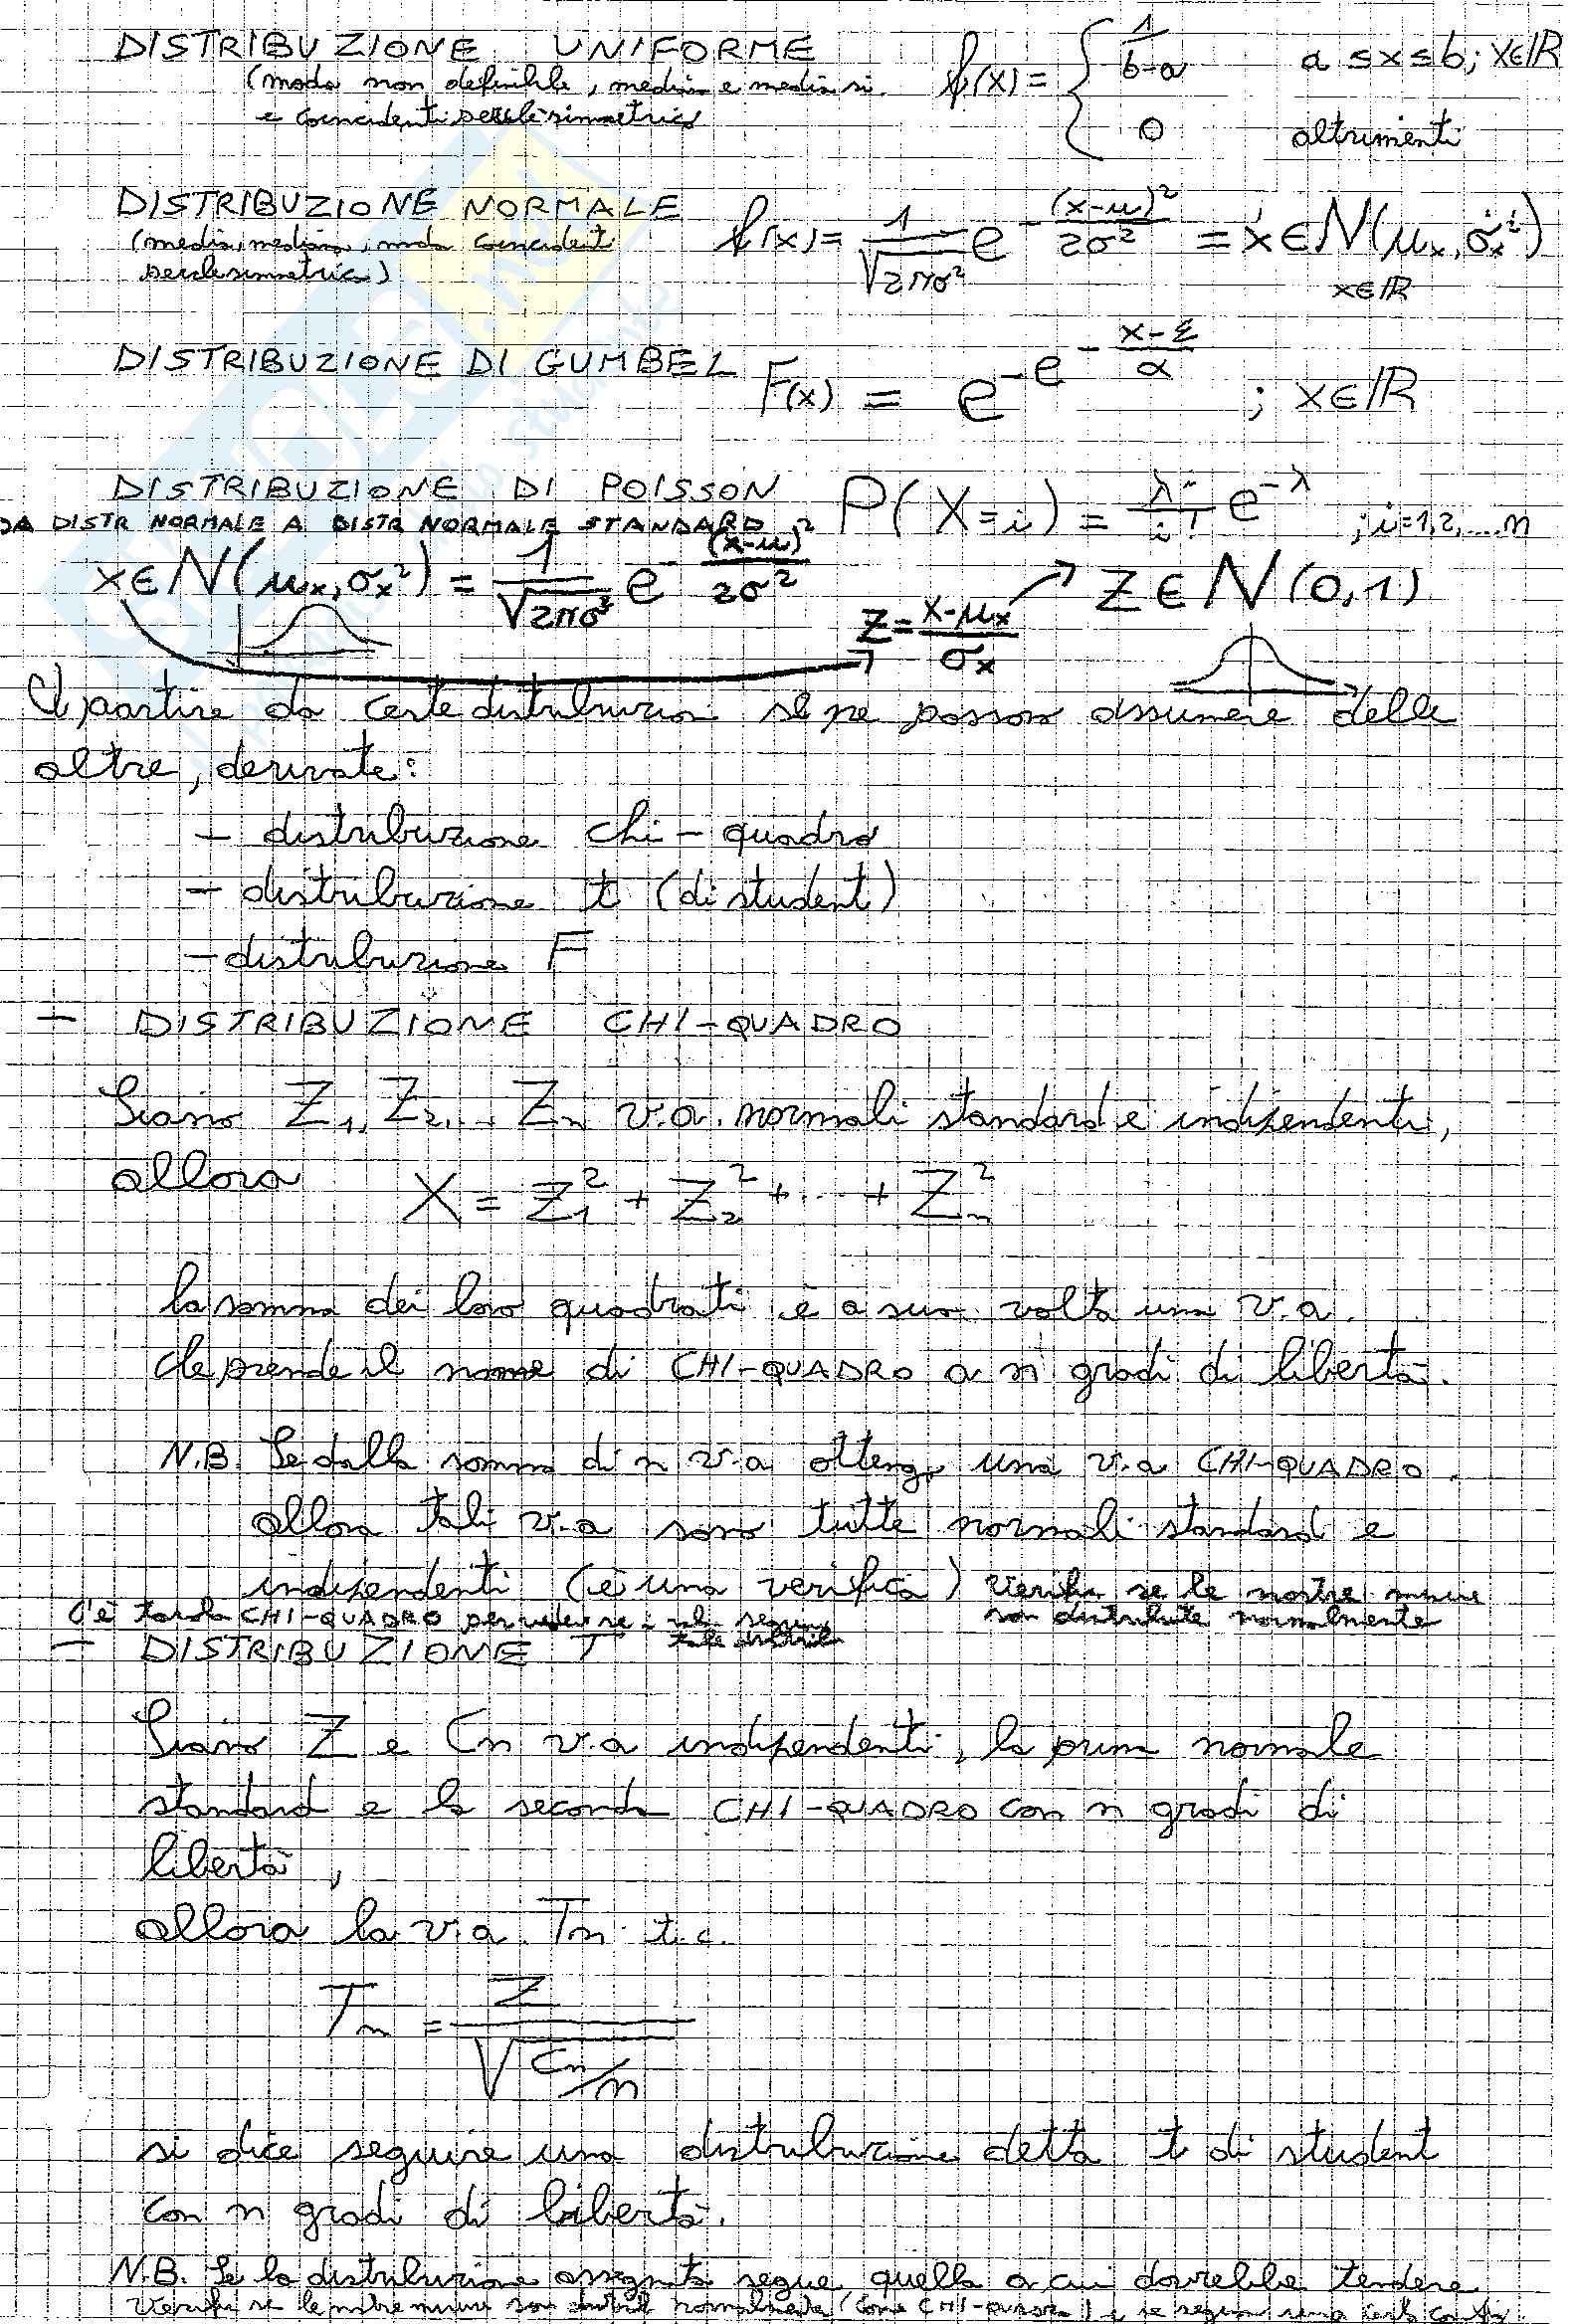 DISTRIBUZIONE UNIFORME f(x) = { 1/(b-a) a ≤ x ≤ b; x∈ℝ
(moda non definibile, mediana e media si
e coincidenti perchè simmetrica
0 altrimenti
DISTRIBUZIONE NORMALE f(x) = 1/√(2πσ²) e^(-(x-μ)²/2σ²) = x∈N(μx, σx²)
(media, mediana, moda coincidenti
perchè simmetrica) x∈ℝ
DISTRIBUZIONE DI GUMBEL F(x) = e^(-e^(-(x-ε)/α)) ; x∈ℝ
DISTRIBUZIONE DI POISSON P(X=i) = λ^i/i! e^(-λ) ; i=1,2,....n
DA DISTR NORMALE A DISTR NORMALE STANDARD
x∈N(μx, σx²) = 1/√(2πσ²) e^(-(x-μ)²/2σ²) Z = (x-μx)/σx → Z∈N(0,1)
A partire da certe distribuzioni se ne possono assumere delle
altre, derivate:
- distribuzione chi-quadro
- distribuzione t (di student)
- distribuzione F
- DISTRIBUZIONE CHI-QUADRO
Siano Z1, Z2, .. Zn v.a. normali standard e indipendenti,
allora X = Z1² + Z2² + ... + Zn²
la somma dei loro quadrati è a sua volta una v.a.
che prende il nome di CHI-QUADRO a n gradi di libertà.
N.B. Se dalla somma di n v.a ottengo una v.a CHI-QUADRO,
allora tali v.a sono tutte normali standard e
indipendenti (è una verifica) verifica se le nostre misure
son distribuite normalmente
C'è tavola CHI-QUADRO per vedere se
- DISTRIBUZIONE T
Siano Z e Cn v.a indipendenti, la prima normale
standard e la seconda CHI-QUADRO con n gradi di
libertà,
allora la v.a. Tn t.c.
Tn = Z/√(Cn/n)
si dice seguire una distribuzione detta t di student
con n gradi di libertà.
N.B. Se la distribuzione assegnata segue quella a cui dovrebbe tendere
Verifica se le nostre misure son distrib normalmente (come CHI-QUADRO) e se seguon una certa